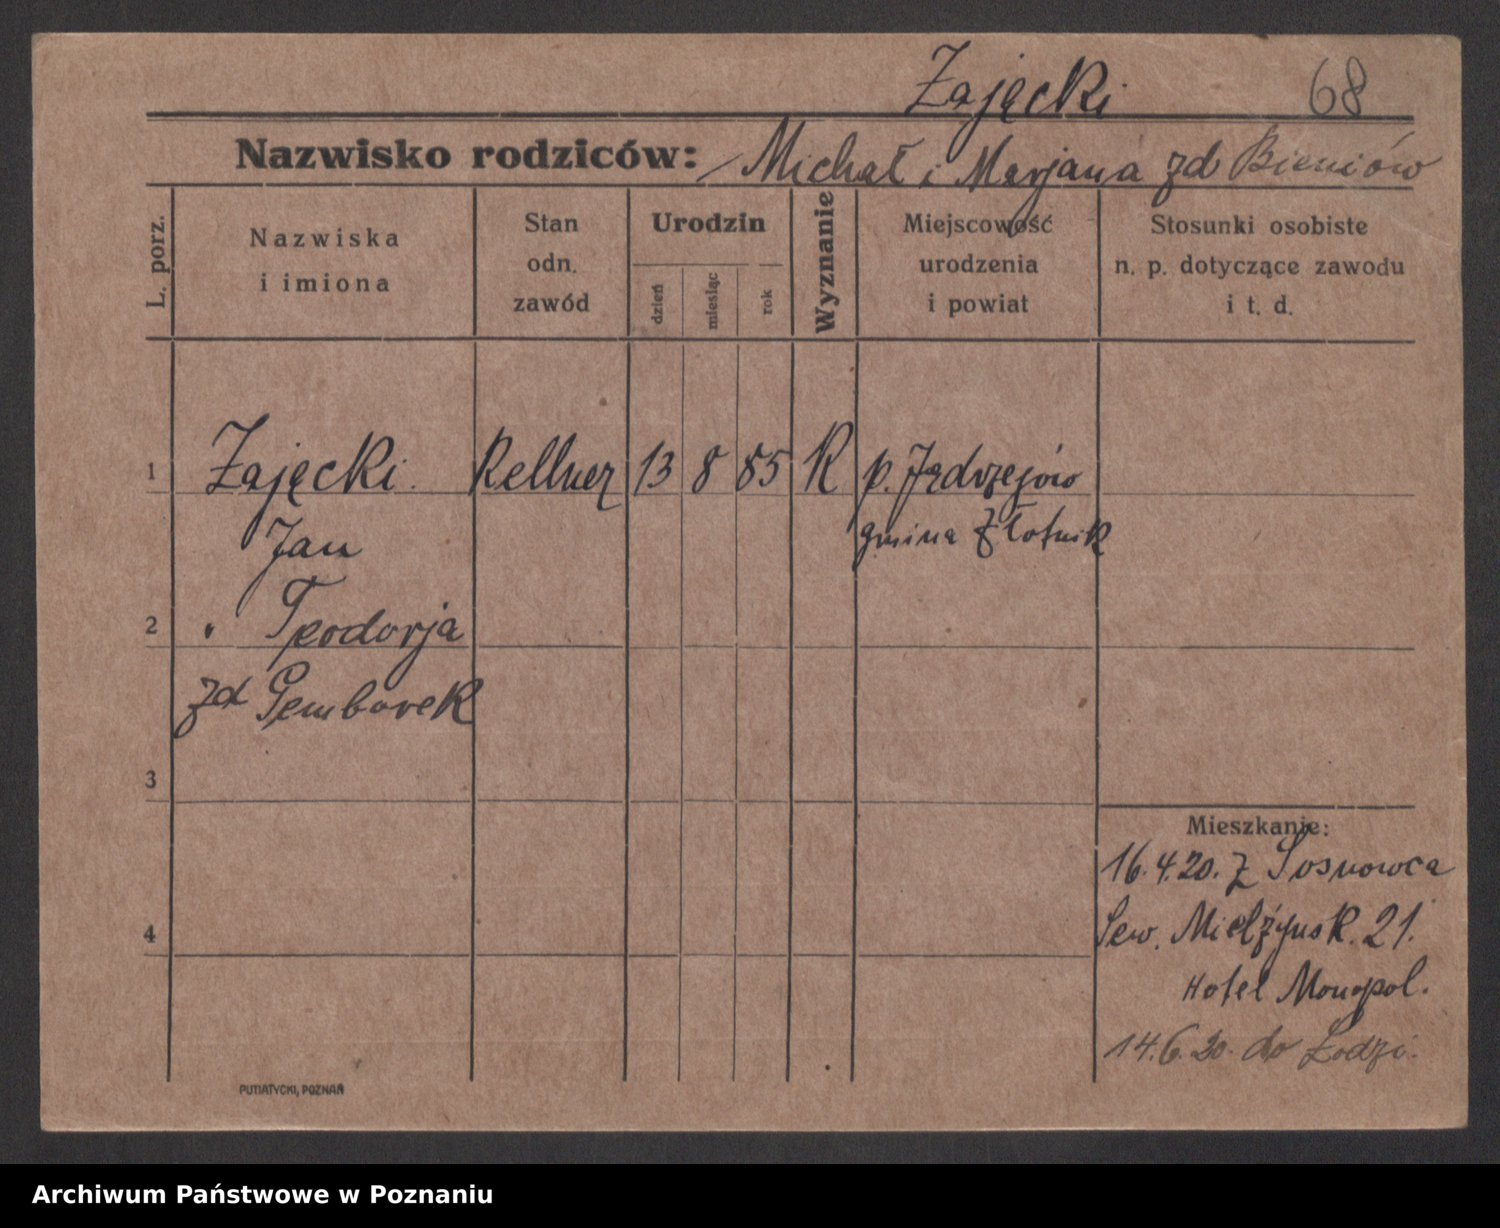 Zajęcki 68
Nazwisko rodziców: Michał i Marjana zd Bieniów
L. porz.
Nazwiska
i imiona
Stan
odn.
zawód
Urodzin
dzień
miesiąc
rok
Wyznanie
Miejscowość
urodzenia
i powiat
Stosunki osobiste
n. p. dotyczące zawodu
i t. d.
1 Zajęcki Kellner 13 8 85 K p. Jędrzejów
Jan gmina Złotnik
2 " Teodorja
zd Gemborek
3
Mieszkanie:
16.4.20. z Sosnowca
4 Sew. Mielżyńsk. 21.
Hotel Monopol.
14.6.20. do Łodzi.
PUTIATYCKI, POZNAŃ
Archiwum Państwowe w Poznaniu